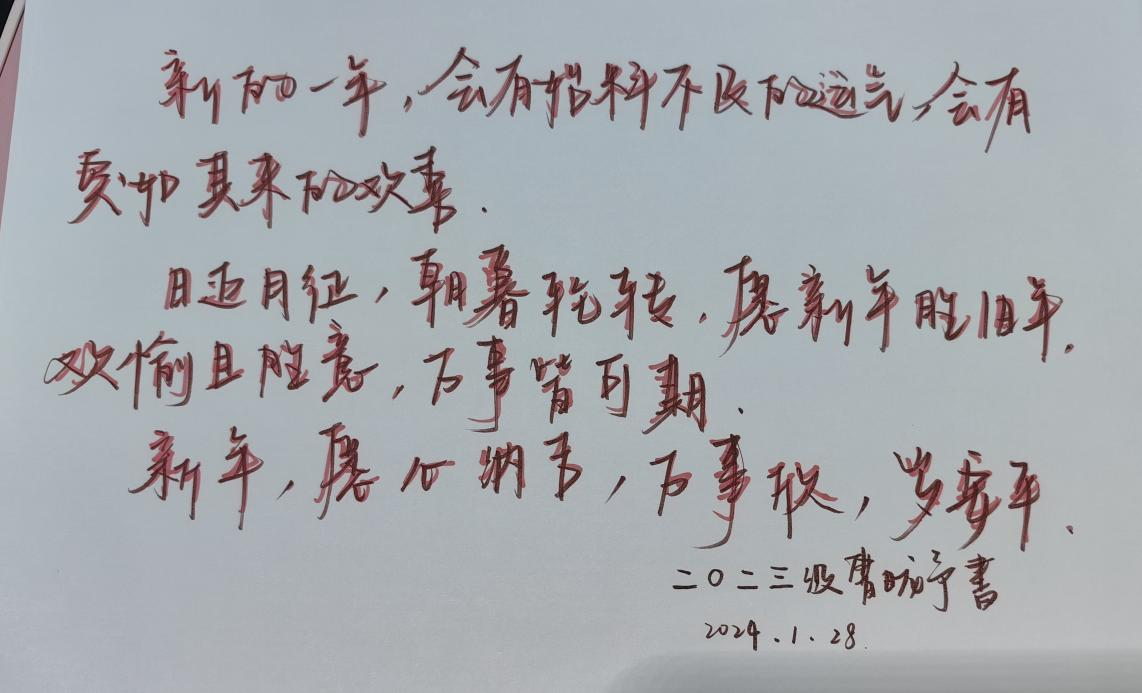 新的一年，会有猝料不及的运气，会有
突如其来的欢喜.
日迈月征，朝暮轮转，愿新年胜旧年.
欢愉且胜意，万事皆可期.
新年，愿尔纳吉，万事顺，岁安平.
二〇二三级书
2024.1.28.